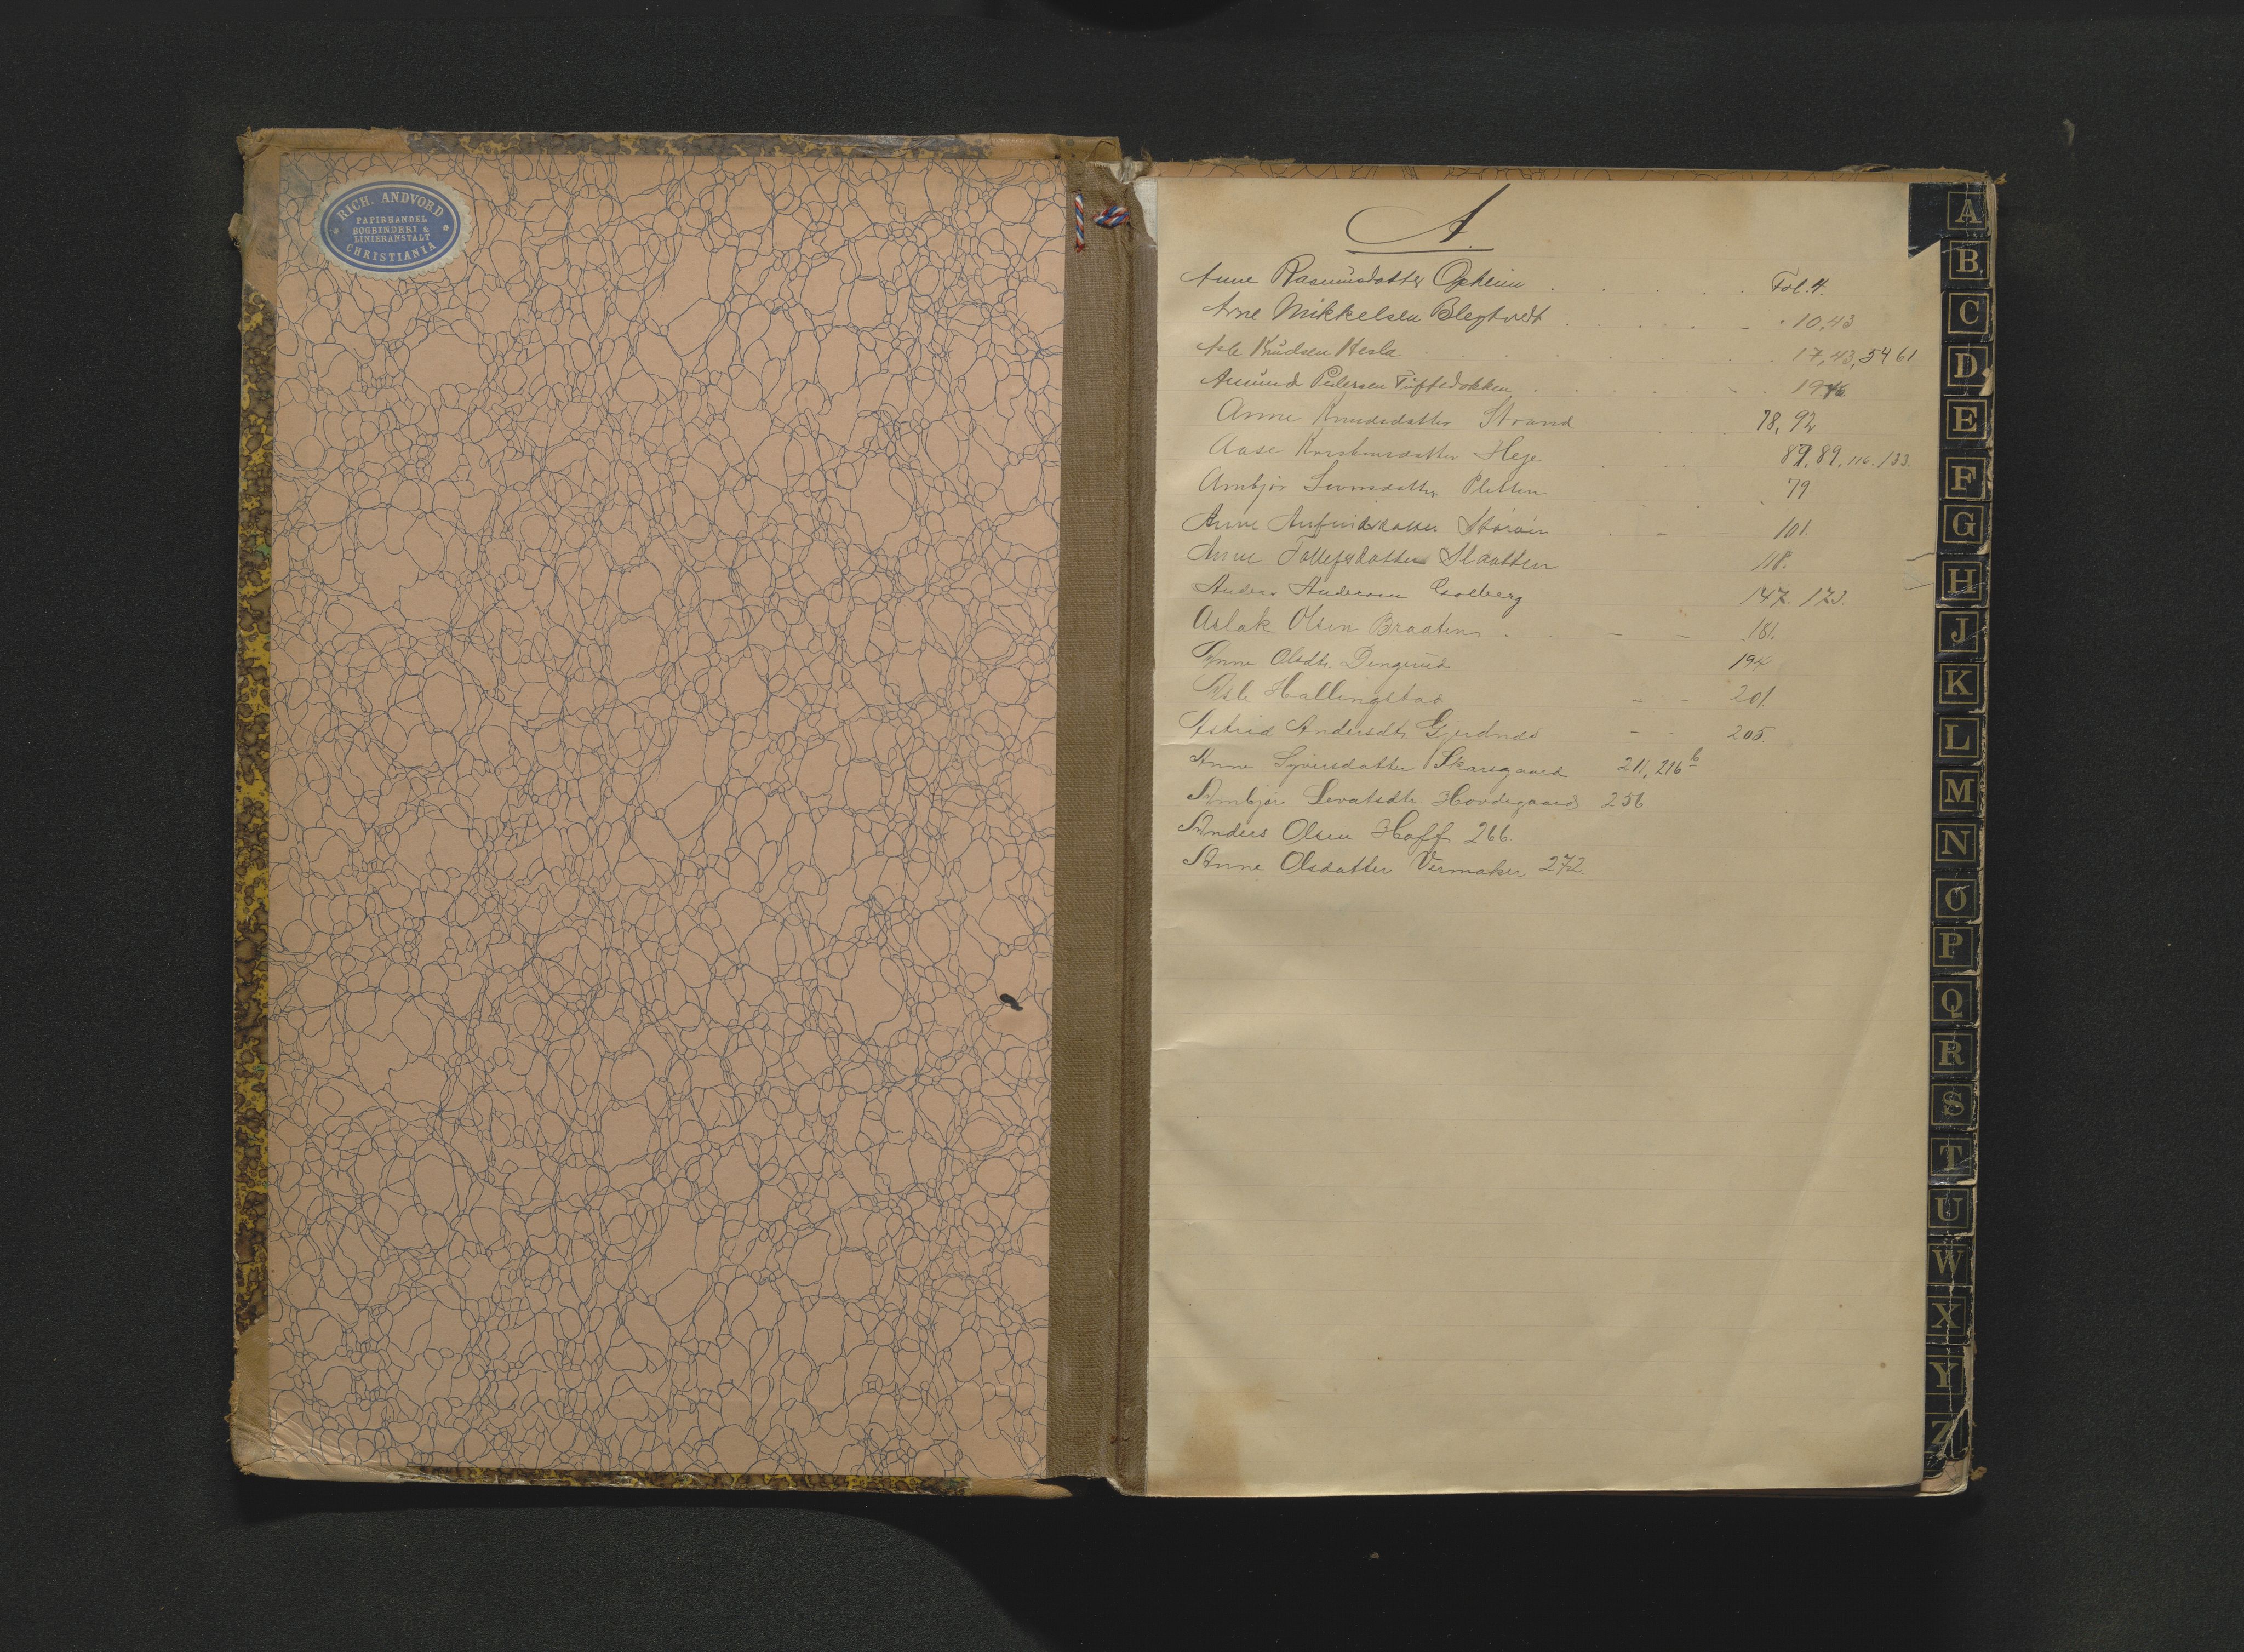 RICH. ANDVORD
PAPIRHANDEL
BOGBINDERI &
LINIERANSTALT
CHRISTIANIA
A.
Anne Rasmusdatter Opheim . . . . . Fol. 4.
Arne Mikkelsen Blegtvedt . . . . . 10, 43
Asle Knudsen Hesla . . . . . 17, 43, 54 61
Amund Pedersen Tuftedokken . . . . .
Anne Knudsdatter Strand 78, 92
Aase Heje 89, 116. 133.
Ambjør Pletten 79
Anne 101.
Anne Tollefsdatter Slaatten 118.
Anders Andersen Golberg 147. 173.
Aslak Olsen Braaten . - - 181.
Anne Olsdtr. 194
Asle Hallingstad - - 201.
Astrid Andersdtr. Gjerdnes - - 205
Anne Syversdatter Skarsgaard 211, 216 b
Ambjør Sevatsdtr. Hovdsgaard 256
Anders Olsen Hoff 266.
Anne Olsdatter Vermaker, 272.
A
B
C
D
E
F
G
H
J
K
L
M
N
O
P
Q
R
S
T
U
W
X
Y
Z